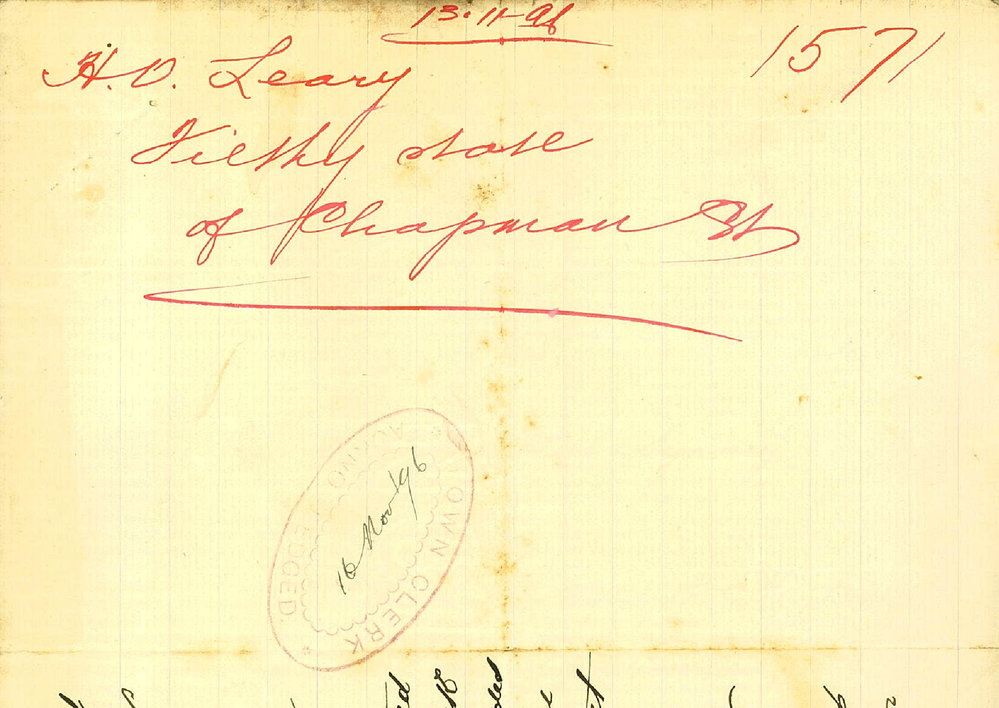 13.11-96
1571
H.O. Leary
Filthy state
of Chapman St
TOWN CLERK
ACKNOWLEDGED.
16 Nov/96